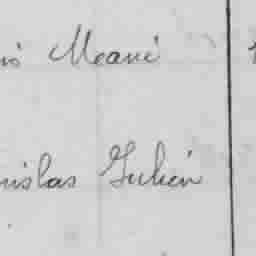 is Meani
nislas Julien